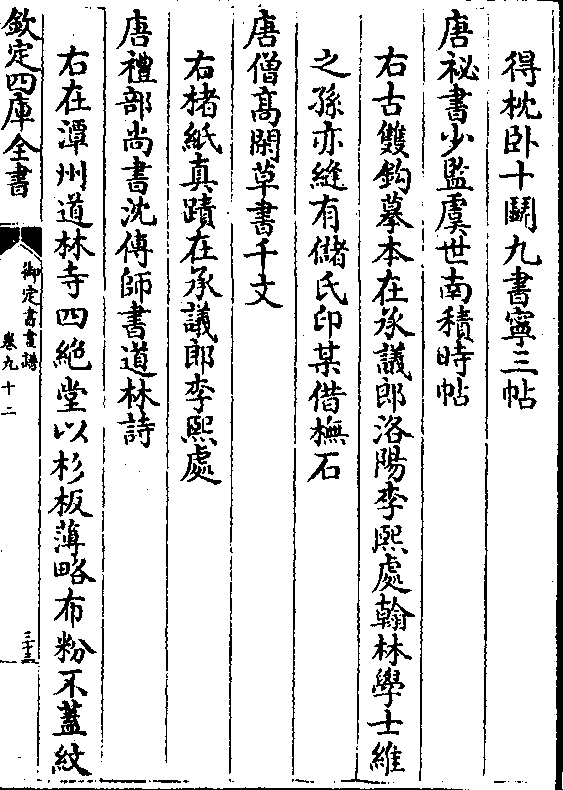 得枕卧十鬭九書寧三帖
唐祕書少監虞世南積時帖
右古雙鈎摹本在承議郎洛陽李熙處翰林學士維
之孫亦縫有儲氏印某借橅石
唐僧髙閑草書千文
右楮紙真蹟在承議郎李熙處
唐禮部尚書沈傳師書道林詩
右在潭州道林寺四絶堂以杉板薄略布粉不葢紋
欽定四庫全書
御定書畫譜
卷九十二
三十三